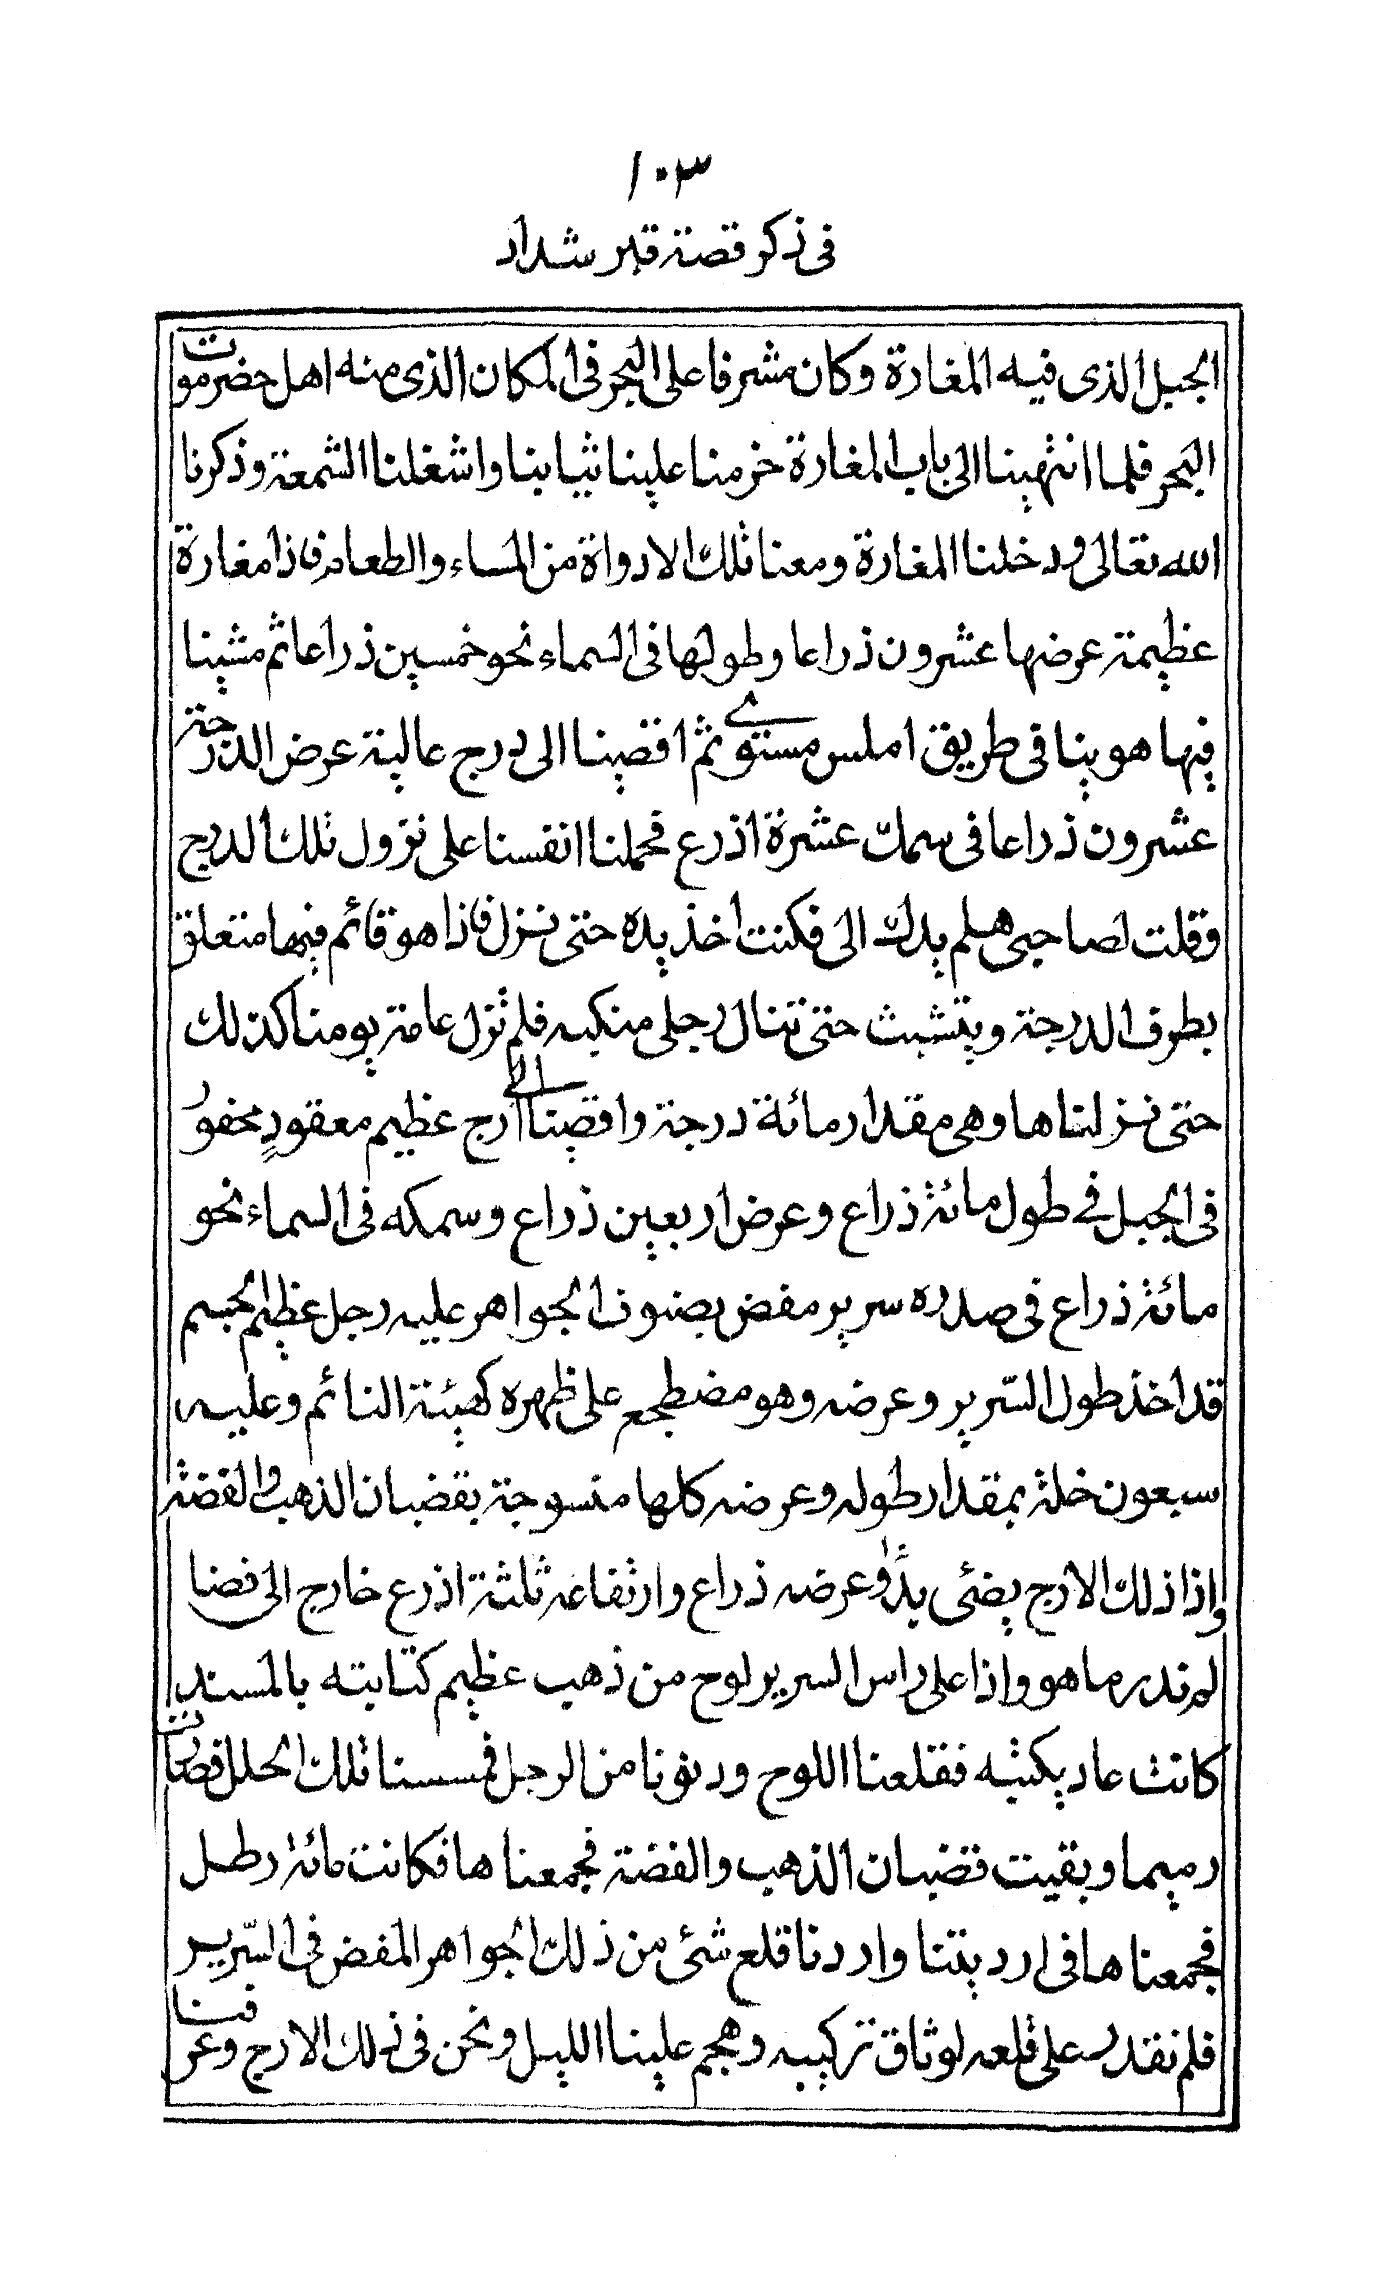 ١٠٣
فى ذكر قصة قبر شداد
الجبل الذى فيه المغارة وكان مشرفا على البحر فى المكان الذى منه اهل حضرموت
البحر فلما انتهينا الى باب المغارة خرمنا علينا ثيابنا واشغلنا الشمعة وذكرنا
الله تعالى ودخلنا المغارة ومعنا تلك الادواة من الماء والطعام فاذا مغارة
عظيمة عرضها عشرون ذراعا وطولها فى السماء نحو خمسين ذراعا ثم مشينا
فيها هوينا فى طريق املس مستوے ثم افضينا الى درج عالية عرض الدرجة
عشرون ذراعا فى سمك عشرة اذرع فحملنا انفسنا على نزول تلك الدرج
وقلت لصاحبى هلم يدك الى فكنت اخذ يده حتى نزل فاذا هو قائم فيها متعلق
بطرف الدرجة ويتشبث حتى تنال رجلى منكبه فلم نزل عامة يومنا كذلك
حتى نزلناها وهى مقدار مائة درجة وافضينا الى ارج عظيم معقودٍ محفور
فى الجبل فے طول مائة ذراع وعرض اربعين ذراع وسمكه فى السماء نحو
مائة ذراع فى صدره سرير مفضض بصنوف الجواهر عليه رجل عظيم الجسم
قد اخذ طول السّرير وعرضه وهو مضطجع على ظهره كهيئة النائم وعليه
سبعون خلة بمقدار طوله وعرضه كلها منسوجة بقضبان الذهب والفضة
واذا ذلك الارج يضئى وعرضه ذراع وارتفاعه ثلثة اذرع خارج الى فضا
لم ندر ما هو واذا على راس السرير لوح من ذهب عظيم كتابته بالمسند
كانت عاد يكتبه فقلعنا اللوح ودنونا من الرجل فمسسنا تلك الحلل فصارت
رميما وبقيت قضبان الذهب والفضة فجمعناها فكانت مائة رطل
فجمعناها فى ارديتنا واردنا قلع شئى من ذلك الجواهر المفضض فى السّرير
فلم نقدر على قلعه لوثاق تركيبه وهجم علينا الليل ونحن فى ذلك الارج وعرفنا